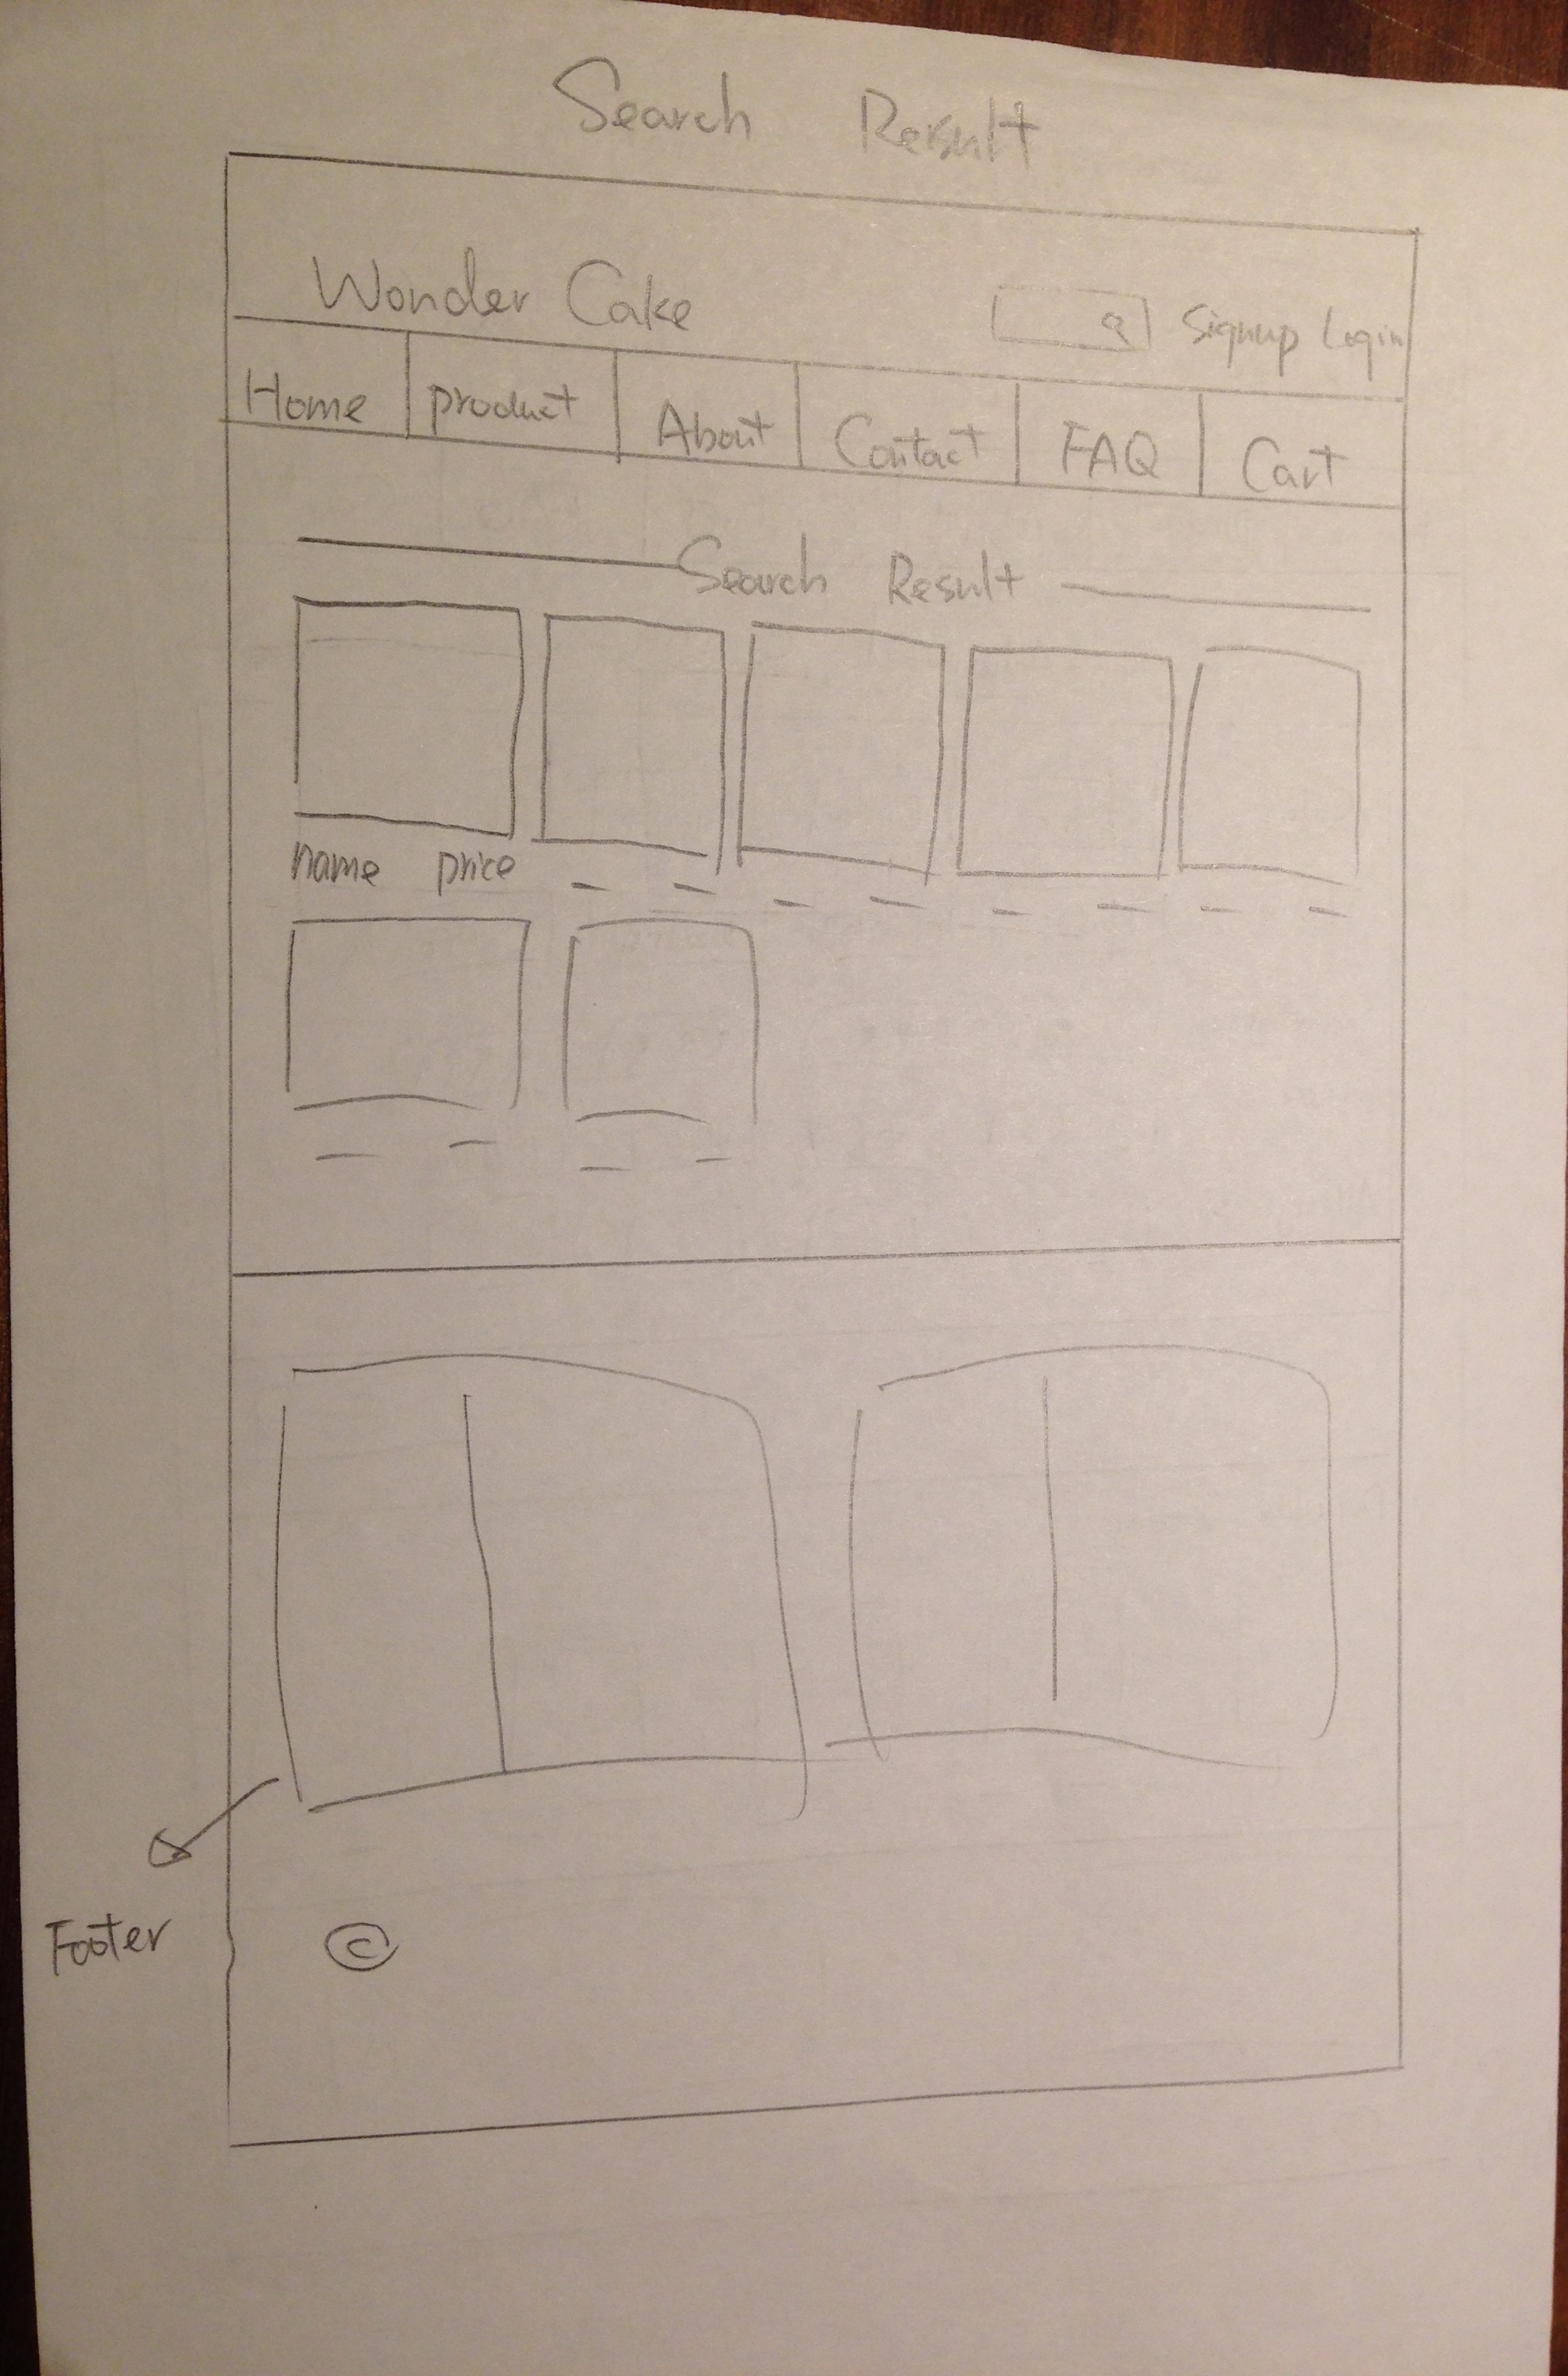 Search Result
Wonder Cake
Signup Login
Home product About Contact FAQ Cart
Search Result
name price
Footer
©